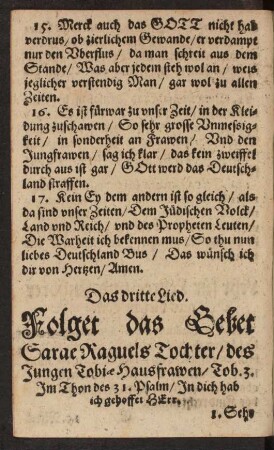 15. Merck auch das GOTT nicht hab
verdrus / ob zierlichem Gewande / er verdampt
nur den Vberflus / da man schreit aus dem
Stande / Was aber jedem steh wol an / weis
jeglicher verstendig Man / gar wol zu allen
Zeiten.
16. Es ist fürwar zu vnser Zeit / in der Klei-
dung zuschawen / So sehr grosse Vnmessig-
keit / in sonderheit an Frawen / Vnd den
Jungfrawen / sag ich klar / das kein zweiffel
durch aus ist gar / GOtt werd das Deutsch-
land straffen.
17. Kein Ey dem andern ist so gleich / als
da sind vnser Zeiten / Dem Jüdischen Volck /
Land vnd Reich / vnd des Propheten Leuten /
Die Warheit ich bekennen mus / So thu nun
liebes Deutschland Bus / Das wünsch ich
dir von Hertzen / Amen.
Das dritte Lied.
Folget das Gebet
Sarae Raguels Tochter / des
Jungen Tobiae Hausfrawen / Tob. 3.
Im Thon des 31. Psalm / In dich hab
ich gehoffet HErr.
1. Sehr